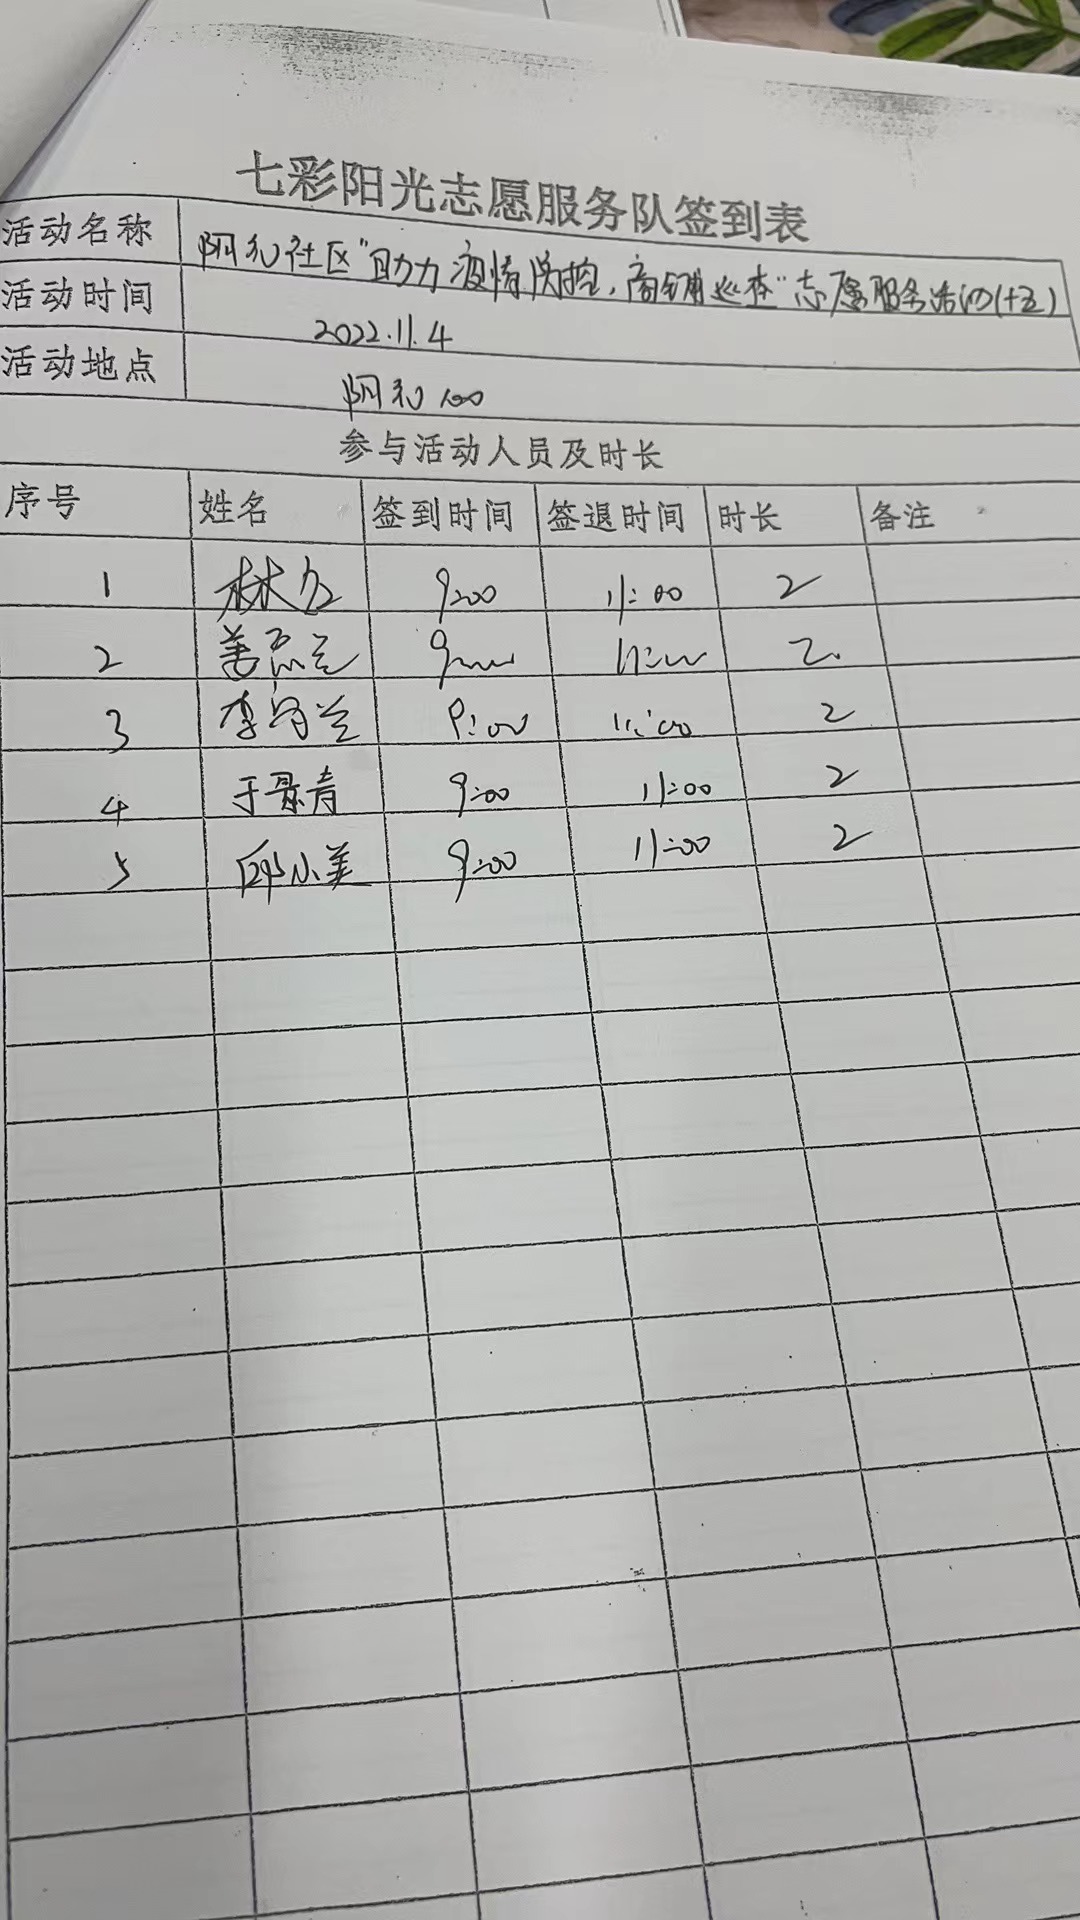 七彩阳光志愿服务队签到表
活动名称 社区"助力疫情防控,商铺巡查"志愿服务活动(十五)
活动时间 2022.11.4
活动地点 100
参与活动人员及时长
序号 姓名 签到时间 签退时间 时长 备注
1 林 9:00 11:00 2
2 姜 9:00 11:00 2.
3 李 兰 9:00 11:00 2
4 于景青 9:00 11:00 2
5 邱小美 9:00 11:00 2